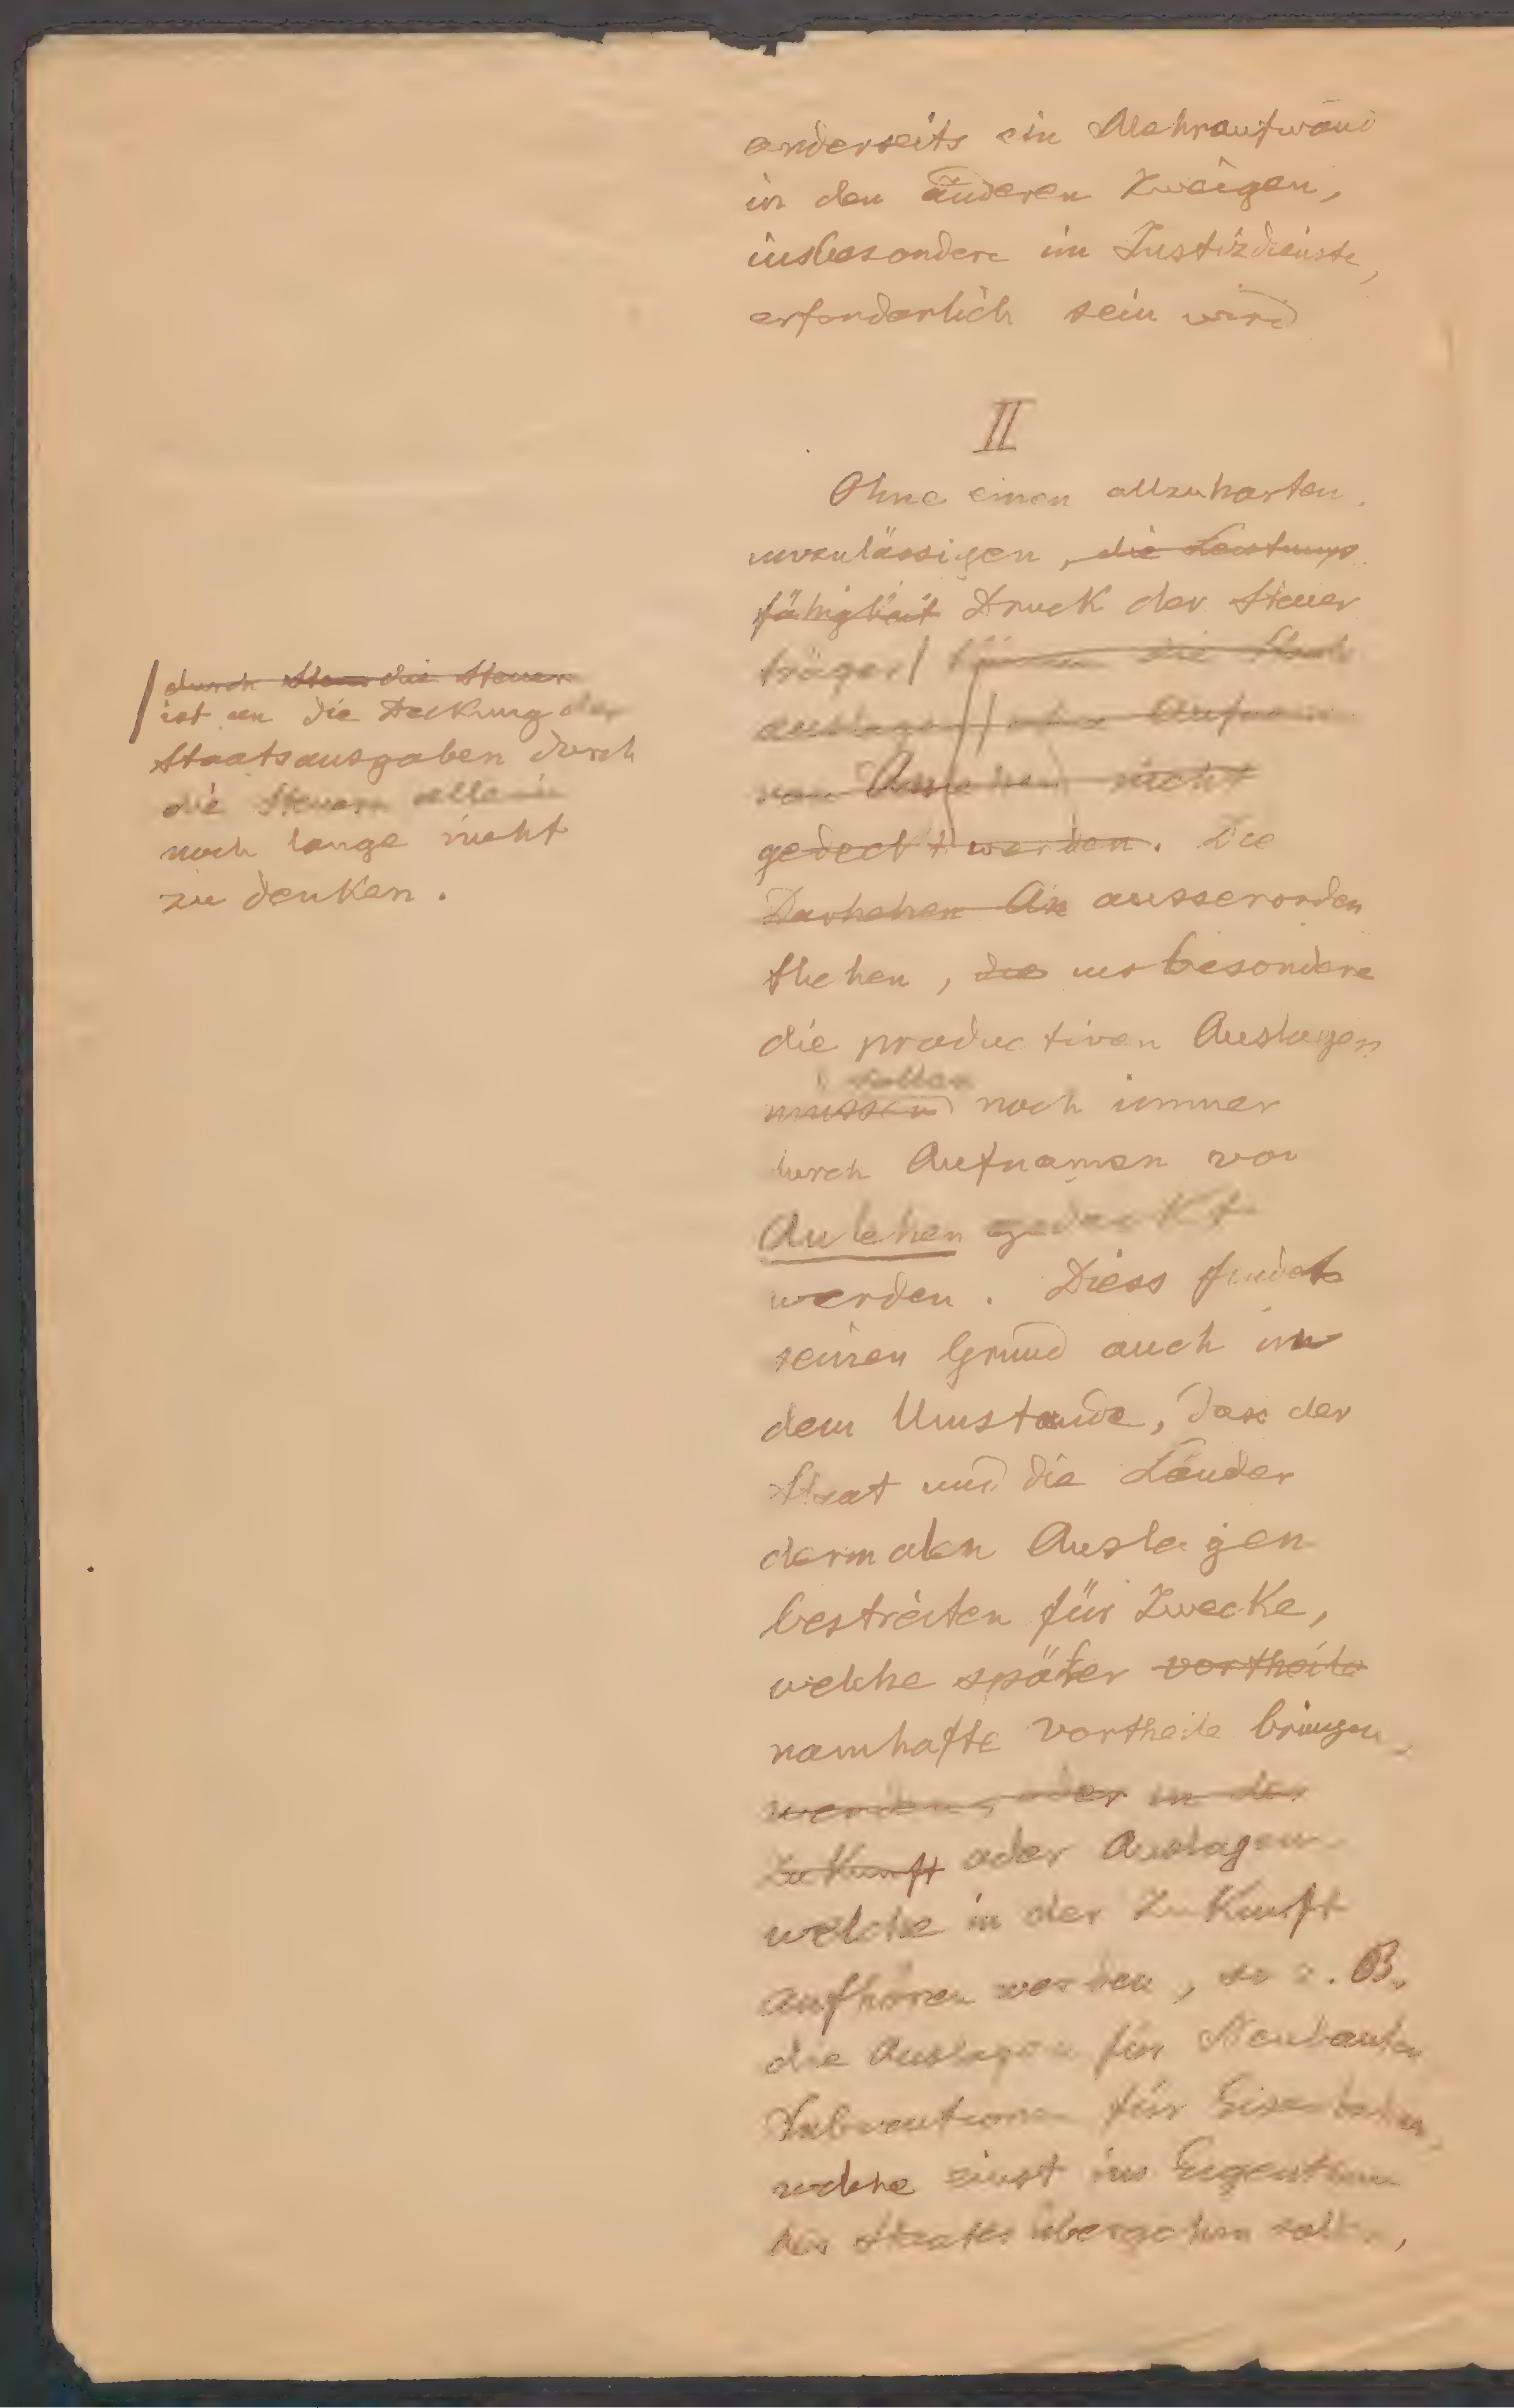 anderseits ein Mehraufwand
in den anderen Zweigen,
insbesondere im Justizdienste,
erforderlich sein wird
II
Ohne einen allzuharten
unzulässigen, die Leistungs
fähigkeit Druck der Steuer
träger können die Staats
auslagen ohne Aufname
von Anlehen nicht
gedeckt werden. Die
Darlehen An ausserorden
tlichen, die insbesondere
die productiven Auslagen
sollen
müssen noch immer
durch Aufnamen von
Anlehen gedeckt
werden. Diess findet
seinen Grund auch in
dem Umstande, dass der
Staat und die Länder
dermalen Auslagen
bestreiten für Zwecke,
welche später vortheile
namhafte Vortheile bringen,
werden, oder in der
Zukunft oder Auslagen
welche in der Zukunft
aufhören werden, so z. B.
die Auslagen für Neubauten
Subventionen für Eisenbahnen,
welche einst ins Eigenthum
des Staates übergehen sollen,
durch Steu die Steuer
ist an die Deckung der
Staatsausgaben durch
die Steuern allein
noch lange nicht
zu denken.